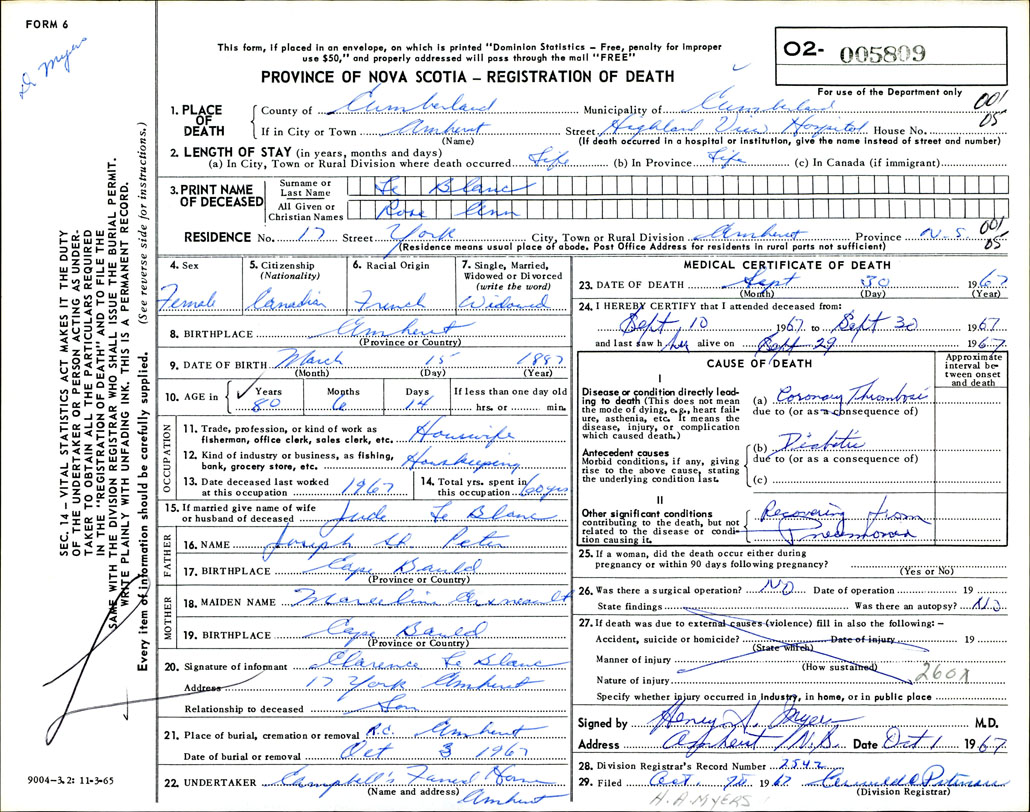 FORM 6
Dr Myers
This form, if placed in an envelope, on which is printed "Dominion Statistics – Free, penalty for improper
use $50," and properly addressed will pass through the mail "FREE"
PROVINCE OF NOVA SCOTIA – REGISTRATION OF DEATH
02- 005809
For use of the Department only
001
05
1. PLACE OF DEATH { County of Cumberland Municipality of Cumberland
If in City or Town Amherst Street Highland View Hospital House No.
(Name) (If death occurred in a hospital or institution, give the name instead of street and number)
2. LENGTH OF STAY (in years, months and days)
(a) In City, Town or Rural Division where death occurred Life (b) In Province Life (c) In Canada (if immigrant)
3. PRINT NAME OF DECEASED { Surname or Last Name Le Blanc
All Given or Christian Names Rose Ann
RESIDENCE No. 17 Street York City, Town or Rural Division Amherst Province N.S. 001
05
(Residence means usual place of abode. Post Office Address for residents in rural parts not sufficient)
4. Sex Female
5. Citizenship (Nationality) Canadian
6. Racial Origin French
7. Single, Married, Widowed or Divorced (write the word) Widowed
8. BIRTHPLACE Amherst
(Province or Country)
9. DATE OF BIRTH March 15 1887
(Month) (Day) (Year)
10. AGE in { Years 80 Months 6 Days 14 If less than one day old hrs. or min.
OCCUPATION
11. Trade, profession, or kind of work as fisherman, office clerk, sales clerk, etc. Housewife
12. Kind of industry or business, as fishing, bank, grocery store, etc. Housekeeping
13. Date deceased last worked at this occupation 1967
14. Total yrs. spent in this occupation 60 yrs
15. If married give name of wife or husband of deceased Jude Le Blanc
FATHER
16. NAME Joseph St. Peter
17. BIRTHPLACE Cape Bauld
(Province or Country)
MOTHER
18. MAIDEN NAME Marcelin Arseneault
19. BIRTHPLACE Cape Bauld
(Province or Country)
20. Signature of informant Clarence Le Blanc
Address 17 York Amherst
Relationship to deceased Son
21. Place of burial, cremation or removal R.C. Amherst
Date of burial or removal Oct 3 1967
22. UNDERTAKER Campbell's Funeral Home
(Name and address) Amherst
MEDICAL CERTIFICATE OF DEATH
23. DATE OF DEATH Sept 30 1967
(Month) (Day) (Year)
24. I HEREBY CERTIFY that I attended deceased from:
Sept 10 1967 to Sept 30 1967
and last saw her alive on Sept 29 1967.
CAUSE OF DEATH
Approximate interval between onset and death
I
Disease or condition directly leading to death (This does not mean the mode of dying, e.g., heart failure, asthenia, etc. It means the disease, injury, or complication which caused death.)
(a) Coronary Thrombosis
due to (or as a consequence of)
Antecedent causes
Morbid conditions, if any, giving rise to the above cause, stating the underlying condition last.
(b) Diabetic
due to (or as a consequence of)
(c)
II
Other significant conditions contributing to the death, but not related to the disease or condition causing it.
Recovering from
Pneumonia
25. If a woman, did the death occur either during pregnancy or within 90 days following pregnancy?
(Yes or No)
26. Was there a surgical operation? NO Date of operation 19
State findings Was there an autopsy? NO
27. If death was due to external causes (violence) fill in also the following: –
Accident, suicide or homicide? Date of injury 19
(State which)
Manner of injury
(How sustained)
Nature of injury 260X
Specify whether injury occurred in Industry, in home, or in public place
Signed by Henry A. Myers M.D.
Address Amherst N.S. Date Oct 1 1967
28. Division Registrar's Record Number 2542
29. Filed Oct. 1967
(Division Registrar)
H.A. MYERS
SEC. 14 – VITAL STATISTICS ACT MAKES IT THE DUTY
OF THE UNDERTAKER OR PERSON ACTING AS UNDER-
TAKER TO OBTAIN ALL THE PARTICULARS REQUIRED
IN THE "REGISTRATION OF DEATH" AND TO FILE THE
SAME WITH THE DIVISION REGISTRAR WHO SHALL ISSUE THE BURIAL PERMIT.
WRITE PLAINLY WITH UNFADING INK. THIS IS A PERMANENT RECORD.
Every item of information should be carefully supplied. (See reverse side for instructions.)
9004-3.2: 11-3-65